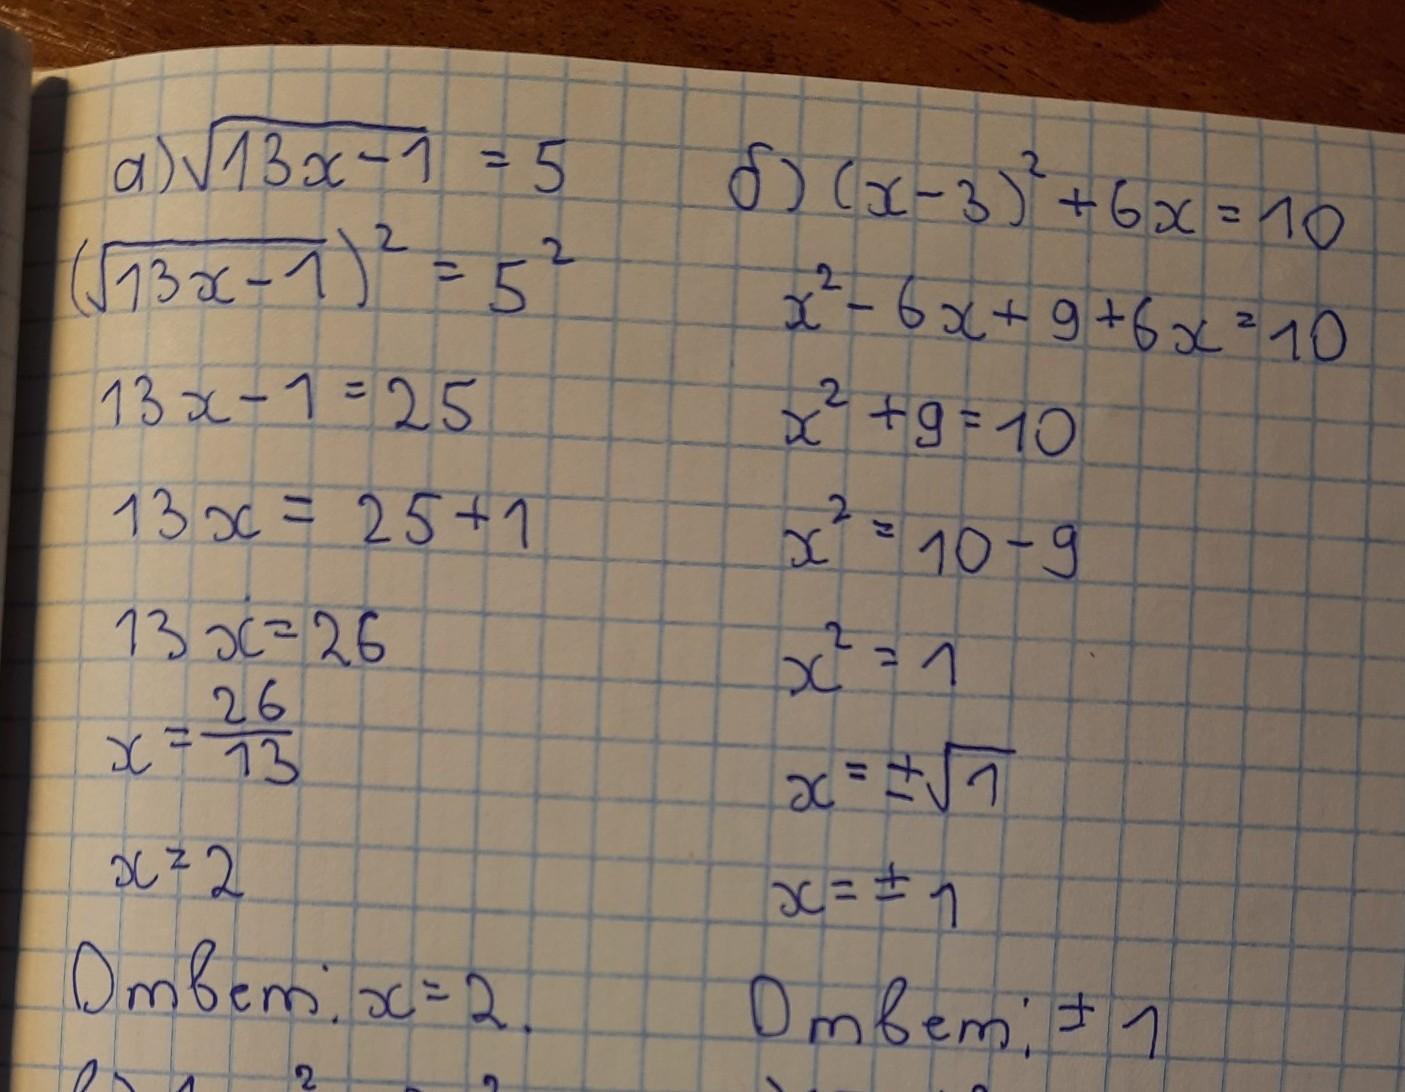 а) √13x-1 = 5
(√13x-1)² = 5²
13x-1=25
13x = 25+1
13x=26
x=26/13
x=2
Ответ: x=2.
б) (x-3)²+6x=10
x²-6x+9+6x=10
x²+9=10
x²=10-9
x²=1
x=±√1
x=±1
Ответ: ±1